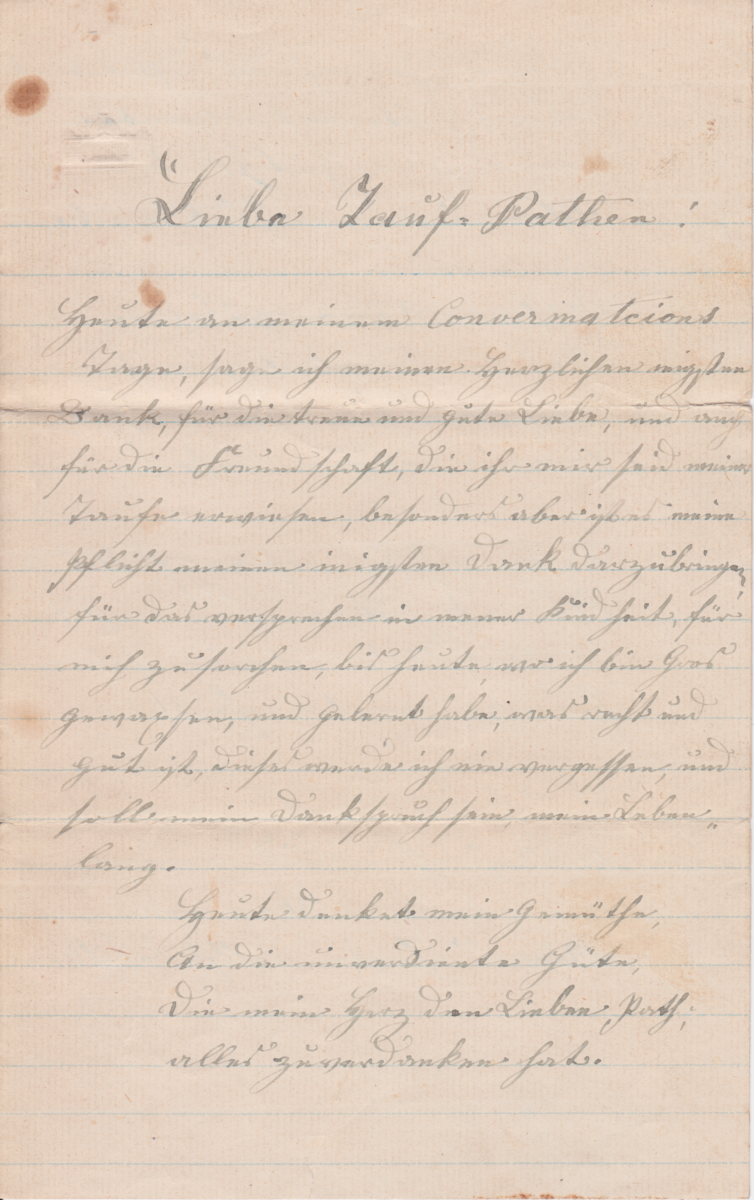 "Liebe Tauf-Pathen!
Heute an meinem Convermatcions
Tage, sage ich meinen Herzlichen inigsten
Dank, für die treue und gute Liebe, und auch
für die Freundschaft, die ihr mir seid meiner
Taufe erwiesen, besonders aber ist es meine
Pflicht meinen inigsten Dank darzubringen,
für das versprechen in meiner Kindheit, für
mich zu sorchen, bis heute, wo ich bin Gros
gewachsen, und gelernt habe, was recht und
gut ist, dieses werde ich nie vergessen, und
soll mein Dankspruch sein, mein Leben„
lang.
Heute denket mein Gemüthe,
An die unverdiente Güte,
Die mein Herz den Lieben Path,
alles zuverdanken hat.